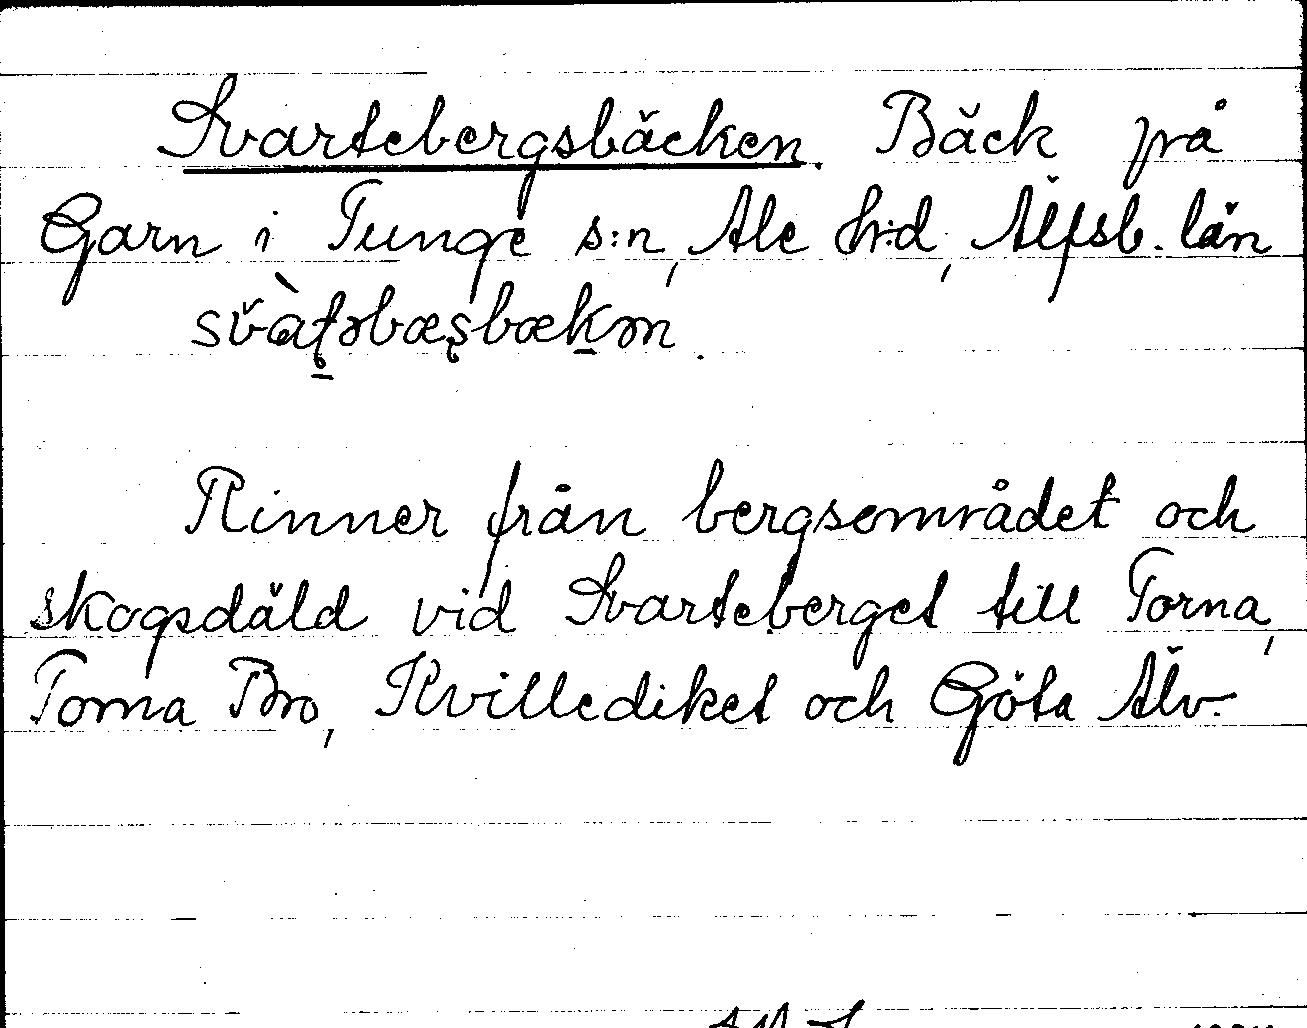 Svartebergsbäcken. Bäck på
Garn i Tunge s:n, Ale h:d, Älfsb. län
Rinner från bergsområdet och
skogsdäld vid Svarteberget till Torna,
Torna Bro, Kvillediket och Göta Älv.